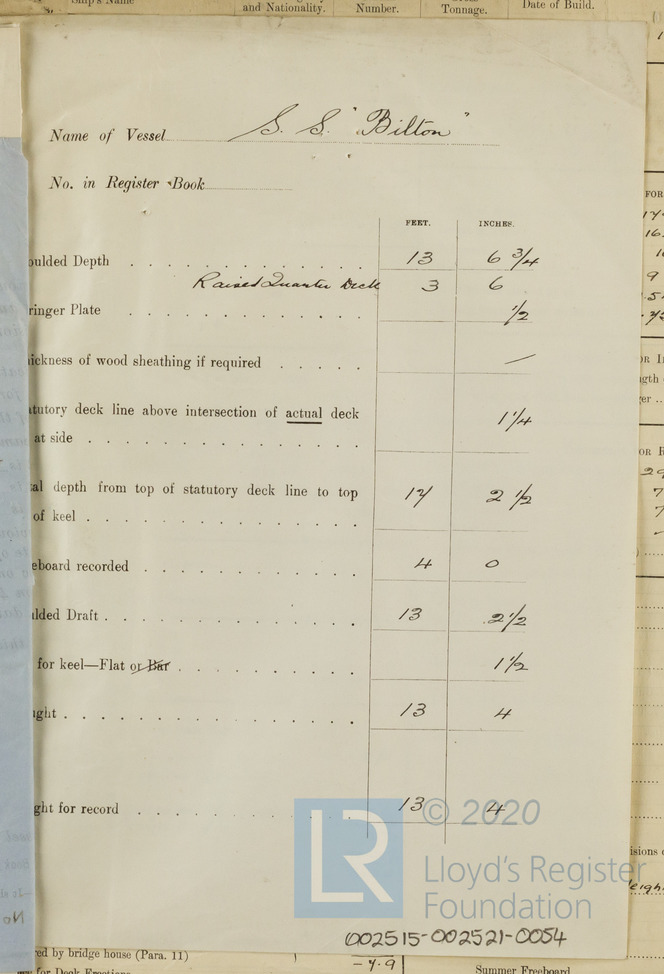 Ship's Name
and Nationality.
Number.
Tonnage.
Date of Build.
Name of Vessel S. S. "Bilton"
No. in Register Book
FEET. INCHES.
oulded Depth 13 6 3/4
Raised Quarter Deck 3 6
ringer Plate 1/2
ickness of wood sheathing if required —
tutory deck line above intersection of actual deck
at side 1 1/4
al depth from top of statutory deck line to top
of keel 17 2 1/2
eboard recorded 4 0
ulded Draft 13 2 1/2
for keel—Flat or Bar 1 1/2
ught 13 4
ght for record 13 4
LR © 2020
Lloyd's Register
Foundation
002515-002521-0054
ed by bridge house (Para. 11)
-4.9
for Deck Erections
Summer Freeboard